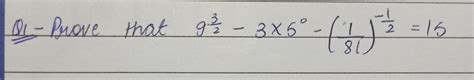 Q1 - Prove that 9^(3/2) - 3×5° - (1/81)^(-1/2) = 15